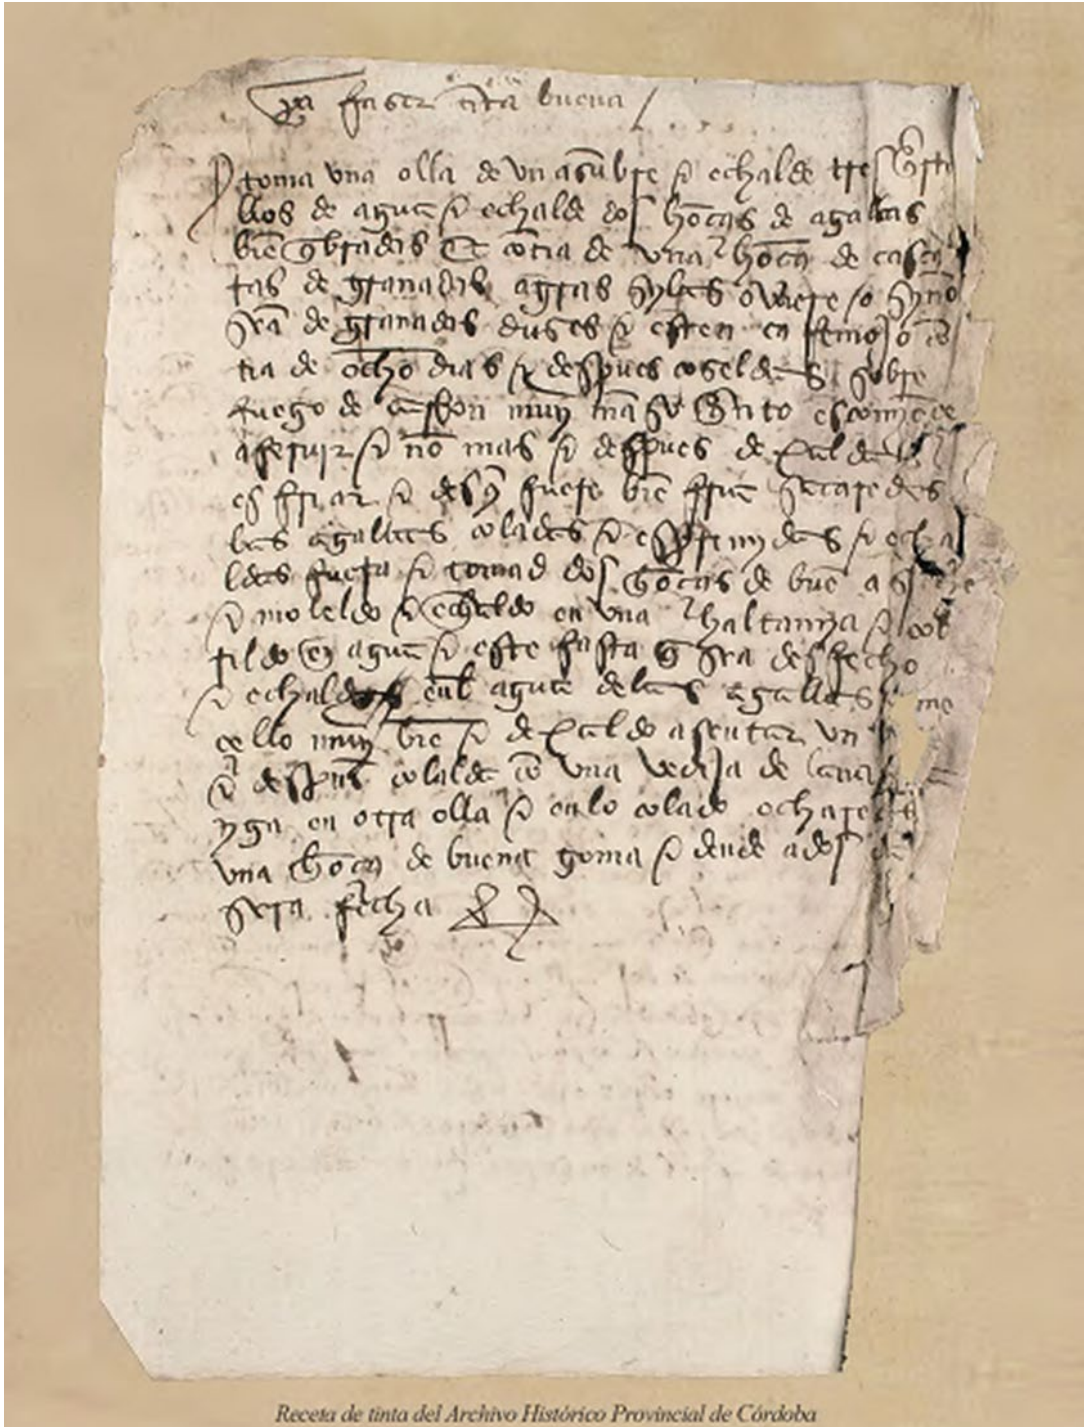 pa faser tinta buena
toma vna olla de vn açunbre e echalde tres quarti
llos de agua e echalde dos honças de agallas
bien qbradas e contia de vna honça de casca
ras de granadas agras sy las oviere o sy no
sea de granadas dulçes e esten en remojo con
tia de ocho dias e despues coseldas sobre
fuego de carbon muy manso qnto comiençe
a feruir e non mas e despues dexaldas
esfriar e desq fuere bien fria sacaredes
las agallas coladas e espremydas e echa
ldas fuera e tomad dos honças de buen
e moleldo e echaldo en vna haltamya e cob
rildo con agua e este fasta q sea desfecho
e echaldo enl agua de las agallas e me
çeldo muy bien e dexaldo asentar vn
e despues colalde con vna vedija de lana
en otra olla e en lo colado echaredes
vna honça de buena goma e dende a dos
sera fecha
Receta de tinta del Archivo Histórico Provincial de Córdoba